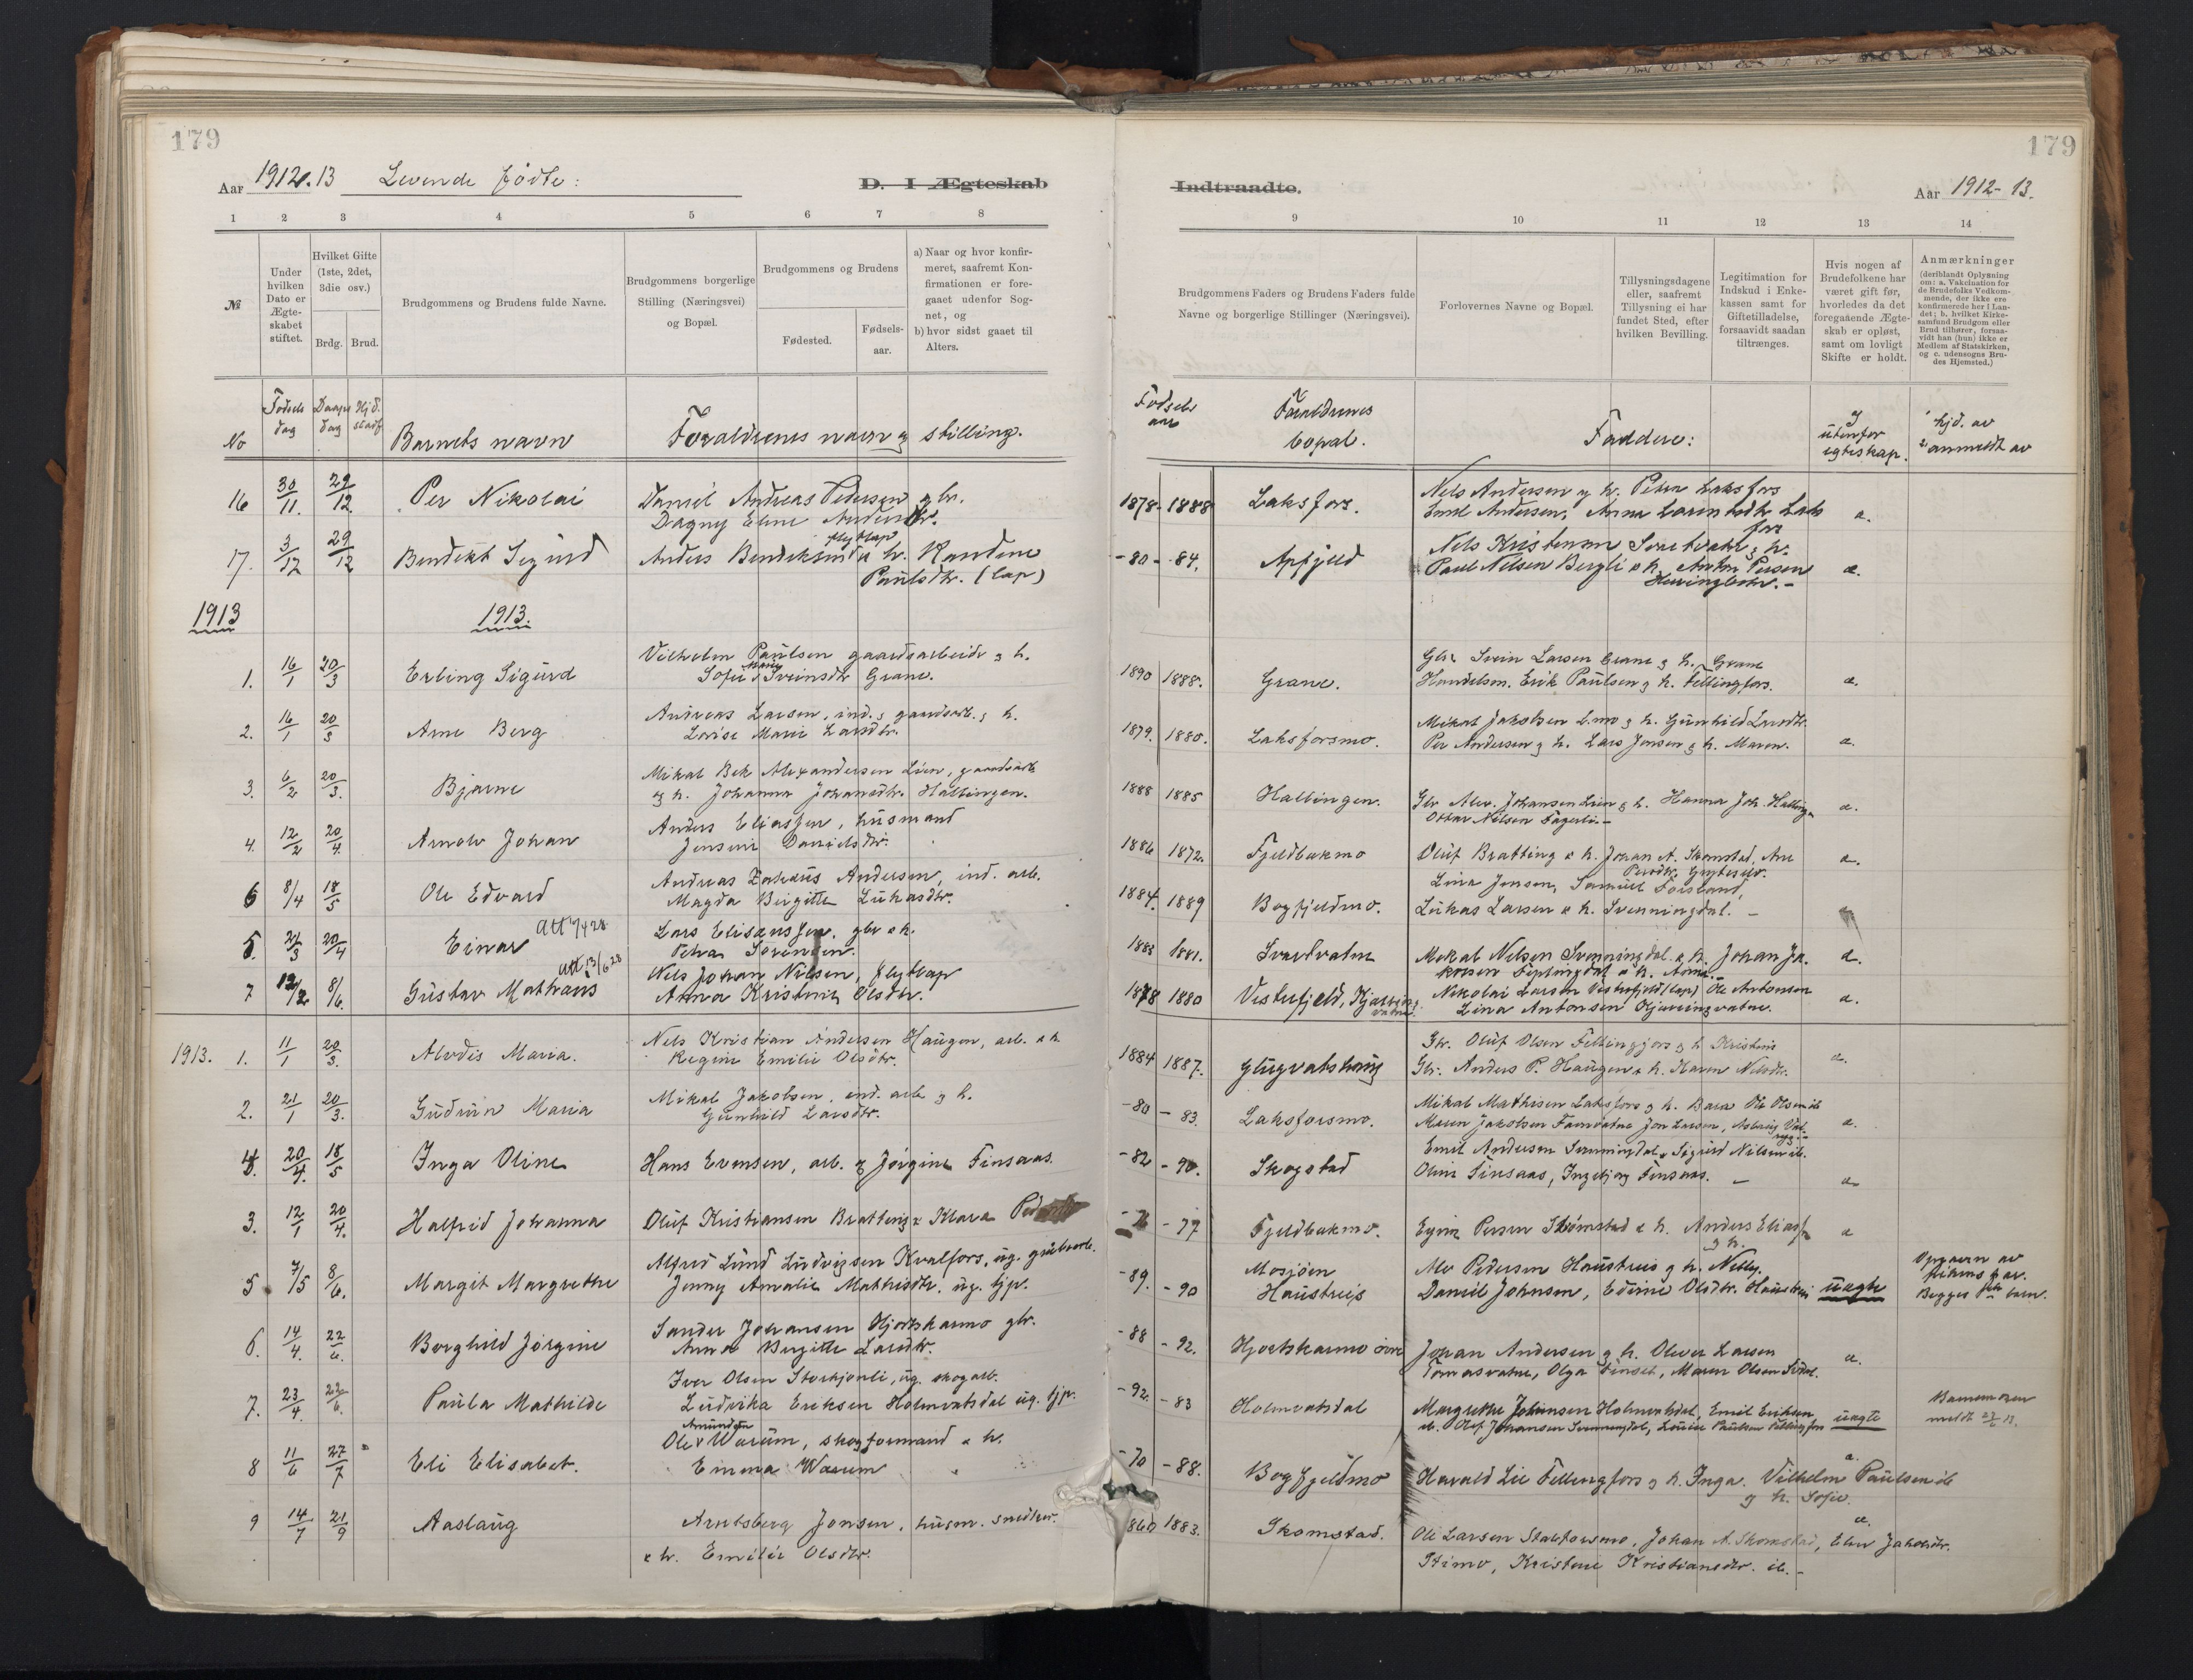 179
Aar 1912.13 Levende fødte:
D. I Ægteskab
1 2 3 4 5 6 7 8
№
Under hvilken Dato er Ægteskabet stiftet.
Hvilket Gifte (1ste, 2det, 3die osv.)
Brdg. Brud.
Brudgommens og Brudens fulde Navne.
Brudgommens borgerlige Stilling (Næringsvei) og Bopæl.
Brudgommens og Brudens
Fødested.
Fødsels-aar.
a) Naar og hvor konfir-
meret, saafremt Kon-
firmationen er fore-
gaaet udenfor Sog-
net, og
b) hvor sidst gaaet til
Alters.
No Fødsels dag Daaps dag Hjd. stadf Barnets navn Forældrenes navn og stilling.
16 30/11. 29/12. Per Nikolai Daniel Andreas Pedersen g hr.
Dagny Eline Andersdtr.
17. 3/12 29/12 Bendikt Sigurd Anders Bendiksen flytlap & h. Kandene
Paulsdtr. (Lap)
1913 1913.
1. 16/1 20/3 Erling Sigurd Vilhelm Paulsen gaardsarbeider g h.
Sofie Marie Sveinsdtr Grane.
2. 16/1 20/3 Arne Berg Andreas Larsen, ind. g gaardsarb. g h.
Lovise Marie Larsdtr.
3. 6/2 20/3. Bjarne Mikal Bek Alexandersen Lien, gaardsarb
og h. Johanna Johansdtr. Hallingen.
4. 12/2 20/4. Arnolv Johan Anders Eliassen, husmand
Jensine Danielsdtr.
6 8/4 18/5 Ole Edvard Andreas Zakarius Andersen, ind. arb.
Magda Birgitte Lukasdtr.
5. 21/3 20/4 Einar Att 7/4 28 Lars Elisaussen. gbr & h.
Petra Sørensen.
7 12/2 8/6. Gustav Mathæus Att 13/6 28 Nils Johan Nilsen, flytlap
Anna Kristine Olsdtr.
1913. 1. 11/1 20/3. Alvdis Maria. Nels Kristian Andersen Haugen, arb. & h
Regine Emilie Olsdtr.
2. 21/1 20/3. Gudrun Maria Mikal Jakobsen. ind. arb g h.
Gunhild Larsdtr.
4. 20/4. 18/5 Inga Oline Hans Evensen, arb. og Jørgine Finsaas.
3. 12/1 20/4. Halfrid Johanna Oluf Kristiansen Bratteng & Klara
5 7/5 8/6. Margit Margrethe Alfred Lund Ludvigsen Kvalfors, ug. grubearb.
Jenny Amalie Mathisdtr. ug. tjp.
6. 14/4. 22/6. Borghild Jørgine Sander Johansen Hjortskarmo gbr.
Anna Birgitte Larsdtr.
7. 23/4. 22/6. Paula Mathilde Iver Olsen Storkjønli, ug. skogarb.
Ludvika Eriksen Holmvatsdal ug. tjp.
8 11/6 27/7 Eli Elisabet. Ole Amundsen Warum, skogformand & h.
Emma Warum
9 14/7 21/9 Aaslaug Arntsberg Jonsen, husm. snedker.
& h. Emilie Olsdtr.
179
Indtraadte.
Aar 1912-13.
9 10 11 12 13 14
Brudgommens Faders og Brudens Faders fulde Navne og borgerlige Stillinger (Næringsvei).
Forlovernes Navne og Bopæl.
Tillysningsdagene eller, saafremt Tillysning ei har fundet Sted, efter hvilken Bevilling.
Legitimation for Indskud i Enkekassen samt for Giftetilladelse, forsaavidt saadan tiltrænges.
Hvis nogen af Brudefolkene har været gift før, hvorledes da det foregaaende Ægteskab er opløst, samt om lovligt Skifte er holdt.
Anmærkninger
(deriblandt Oplysning om: a. Vakcination for de Brudefolks Vedkommende, der ikke ere konfirmerede her i Landet; b. hvilket Kirkesamfund Brudgom eller Brud tilhører, forsaavidt han (hun) ikke er Medlem af Statskirken, og c. udensogns Brudes Hjemsted.)
Fødsels aar Forældrenes bopæl. Faddere: I utenfor egteskap. hjd. av anmeldt av
1878- 1888 Laksfors. Nels Andersen g h. Petra Laksfors
Emil Andersen, Anna Larintsdtr Laksfors a.
-80- -84. Apfjeld Nels Kristensen Svartvatn g h.
Paul Nilsen Bergli & h. Anton Persen a.
1890 1888. Grane. Gbr. Svein Larsen Grane g h. Grane
Handelsm. Erik Paulsen g h. Fellingfors. a.
1879. 1880. Laksforsmo. Mikal Jakobsen L.mo g h. Gunhild Larsdtr.
Per Andersen g h. Lars Jonsen g h. Maren. a.
1888 1885 Hallingen. Gbr Alex. Johansen Lien g h. Hanna Joh. Halling. a.
Ottar Nilsen Fagerli.-
1886 1872. Fjeldbakmo Oluf Bratteng & h. Johan A. Skomstad, Ane a.
Persdtr.
1884. 1889 Bogfjeldmo. Lina Jensen, Samuel Forsland
Lukas Larsen & h. Svenningdal. -
1883 1881. Svartvatn Mikal Nilsen Svenningdal & h. Johan Ja- a.
kobsen Fiplingdal & h. Anna.-
1878 1880 Vestrefjeld, Nikolai Larsen Vestrefjeld (Lap) Ole Antonsen a.
Lina Antonsen
1884 1887. Glugvatshaug Gbr. Oluf Olsen Fellingfors g h Kristine
Gbr. Anders P. Haugen & h. Karen Nilsdtr. a.
-80 -83. Laksforsmo. Mikal Mathisen Laksfors g h. Bara Ole Olsen ib
Maren Jakobsen a.
-82 -90. Skogstad Emil Andersen Svenningdal, Sigurd Nilsen ib.
Oline Finsaas, Ingebjørg Finsaas. - a
-77 Fjeldbakmo. Persen Skomstad & h. Anders Eliass. a
g h.
-89. -90 Mosjøen
Haustreis Alv Pedersen Haustreis g h. Nelly.
Daniel Johnsen, Edine Olsdtr. Haustreis uægte
Begges barn.
-88 -92. Hjortskarmo øvre Johan Andersen g h. Oliver Larsen a.
Tomasvatne, Olga Finset, Maren Olsen
-92. -83 Holmvatsdal Margrethe Johansen Holmvatsdal, Emil Eriksen
ib. Olaf Johansen Svenningdal, Louise Paulsen Fellingfors uægte
-70 -88. Bogfjeldmo Harald Lie Fellingfors g h. Inga. Vilhelm Paulsen ib a.
g h. Sofie.
1860 1883. Skomstad. Ole Larsen Stabforsmo, Johan A. Skomstad, Elen Jakobsdtr. a.
Stimo, Kristine Kristiansdtr. ib.-